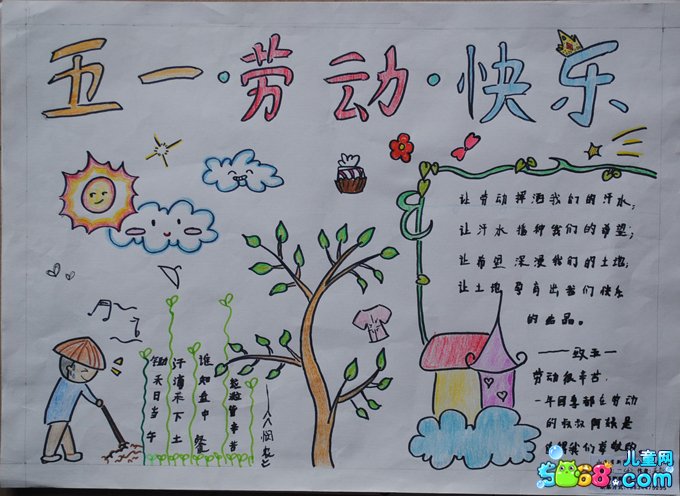 五一·劳动·快乐
让劳动挥洒我们的汗水;
让汗水播种我们的希望;
让希望深浸我们的土地;
让土地孕育出我们快乐
的出品。
——致五一
劳动很辛苦,
一年四季都在劳动
的叔叔阿姨是
值得我们尊敬的
锄禾日当午
汗滴禾下土
谁知盘中餐
粒粒皆辛苦
——《悯农》
儿童网
5068.com